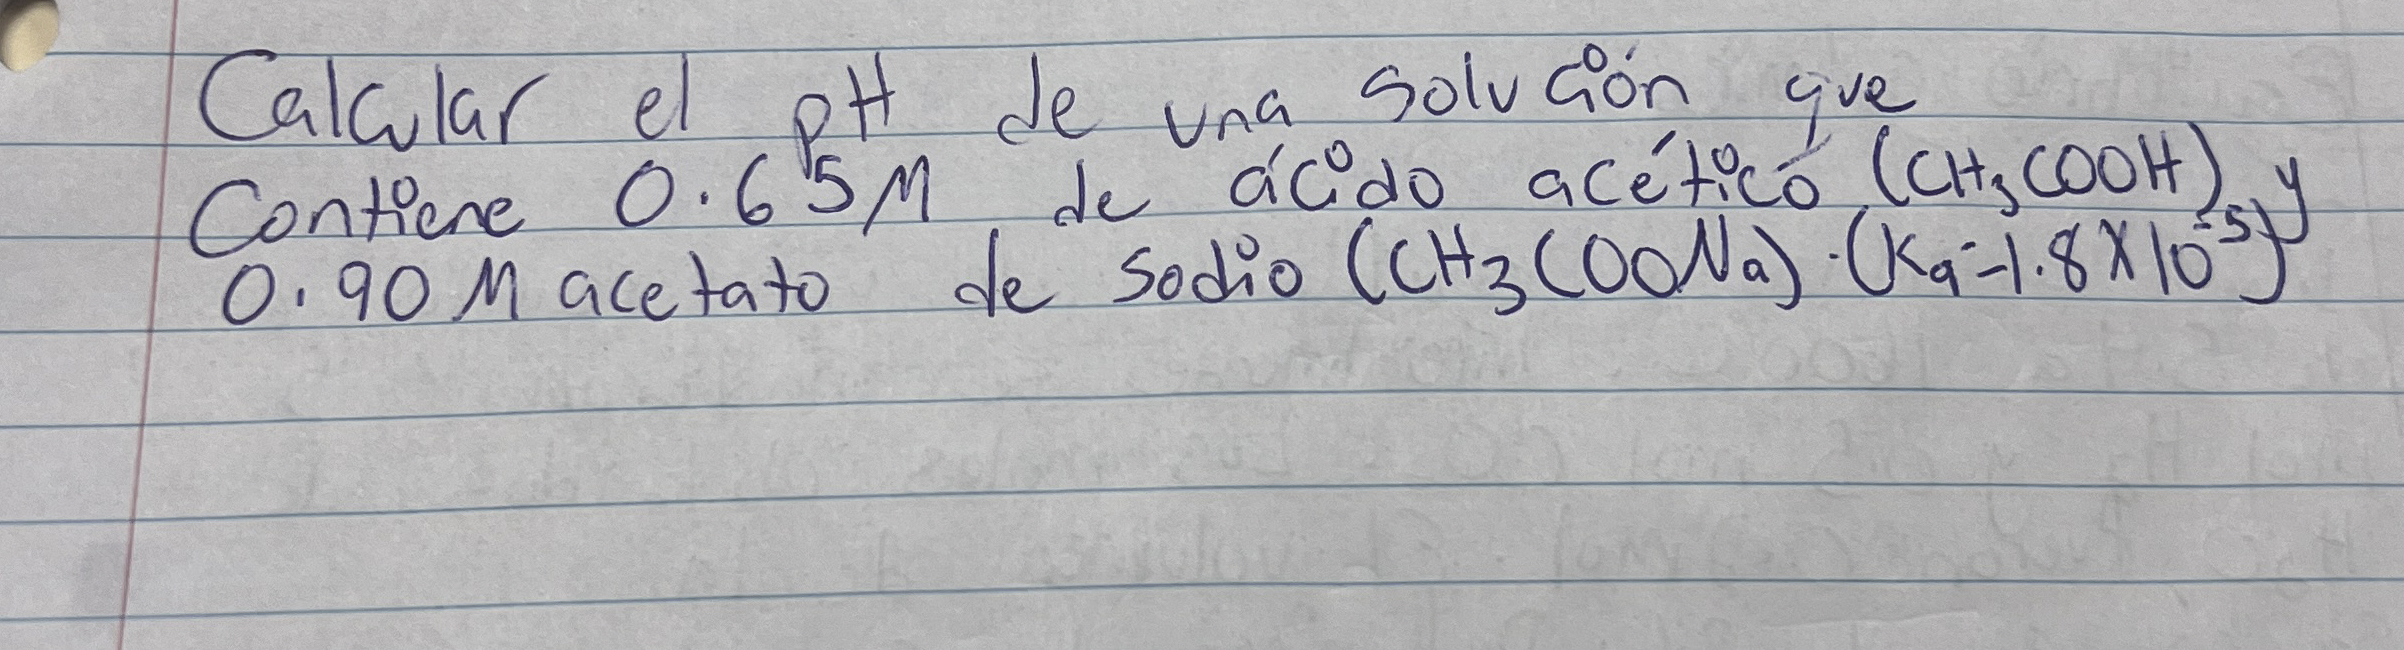 Calcular el pH de una solución que
Contiene 0.65M de ácido acético (CH₃COOH) y
0.90 M acetato de sodio (CH₃COONa). (Ka=1.8X10⁻⁵)